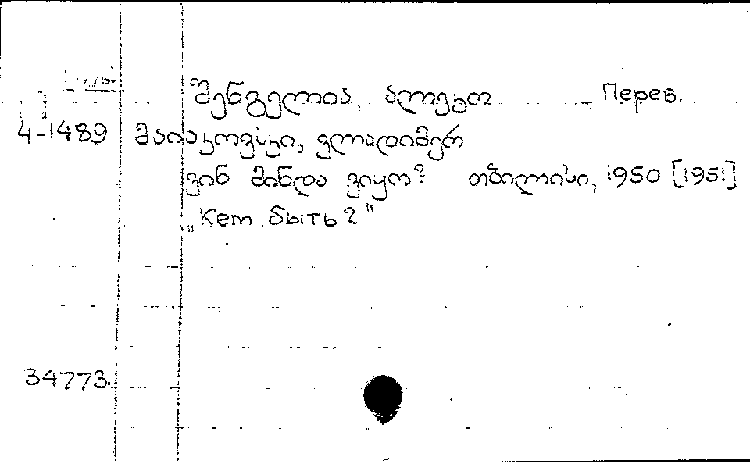 შენგელია, ალეკო Перев.
4-1489 მაიაკოვსკი, ვლადიმერ
ვინ მინდა ვიყო? თბილისი, 1950 [1951]
„Кем быть?"
34773